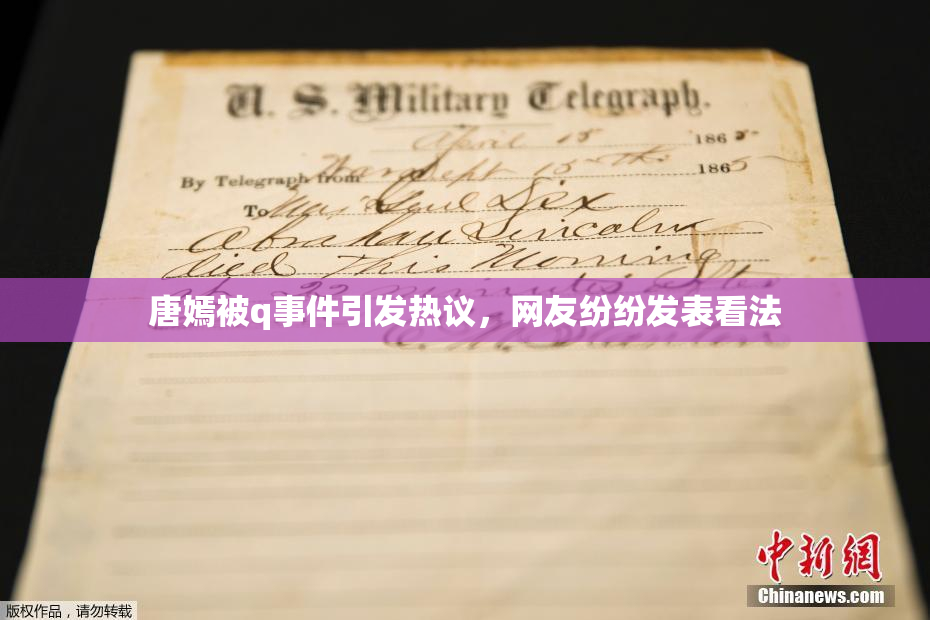 U. S. Military Telegraph.
April 15 1865
By Telegraph from War Dept 15th 1865
To Maj Genl Dix
Abraham Lincoln
died This Morning
at 22 minutes after
唐嫣被q事件引发热议，网友纷纷发表看法
E. M. Stanton
中新网
Chinanews.com
版权作品，请勿转载